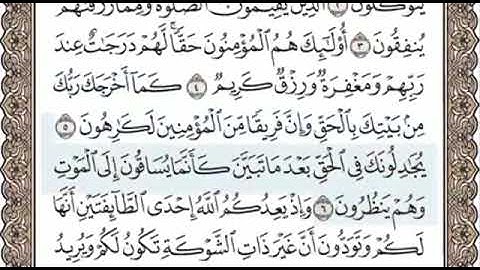 يَتَوَكَّلُونَ ٢ ٱلَّذِينَ يُقِيمُونَ ٱلصَّلَوٰةَ وَمِمَّا رَزَقْنَٰهُمْ
يُنفِقُونَ ٣ أُوْلَٰٓئِكَ هُمُ ٱلْمُؤْمِنُونَ حَقًّا لَّهُمْ دَرَجَٰتٌ عِندَ
رَبِّهِمْ وَمَغْفِرَةٌ وَرِزْقٌ كَرِيمٌ ٤ كَمَآ أَخْرَجَكَ رَبُّكَ
مِنۢ بَيْتِكَ بِٱلْحَقِّ وَإِنَّ فَرِيقًا مِّنَ ٱلْمُؤْمِنِينَ لَكَٰرِهُونَ ٥
يُجَٰدِلُونَكَ فِى ٱلْحَقِّ بَعْدَ مَا تَبَيَّنَ كَأَنَّمَا يُسَاقُونَ إِلَى ٱلْمَوْتِ
وَهُمْ يَنظُرُونَ ٦ وَإِذْ يَعِدُكُمُ ٱللَّهُ إِحْدَى ٱلطَّآئِفَتَيْنِ أَنَّهَا
لَكُمْ وَتَوَدُّونَ أَنَّ غَيْرَ ذَاتِ ٱلشَّوْكَةِ تَكُونُ لَكُمْ وَيُرِيدُ